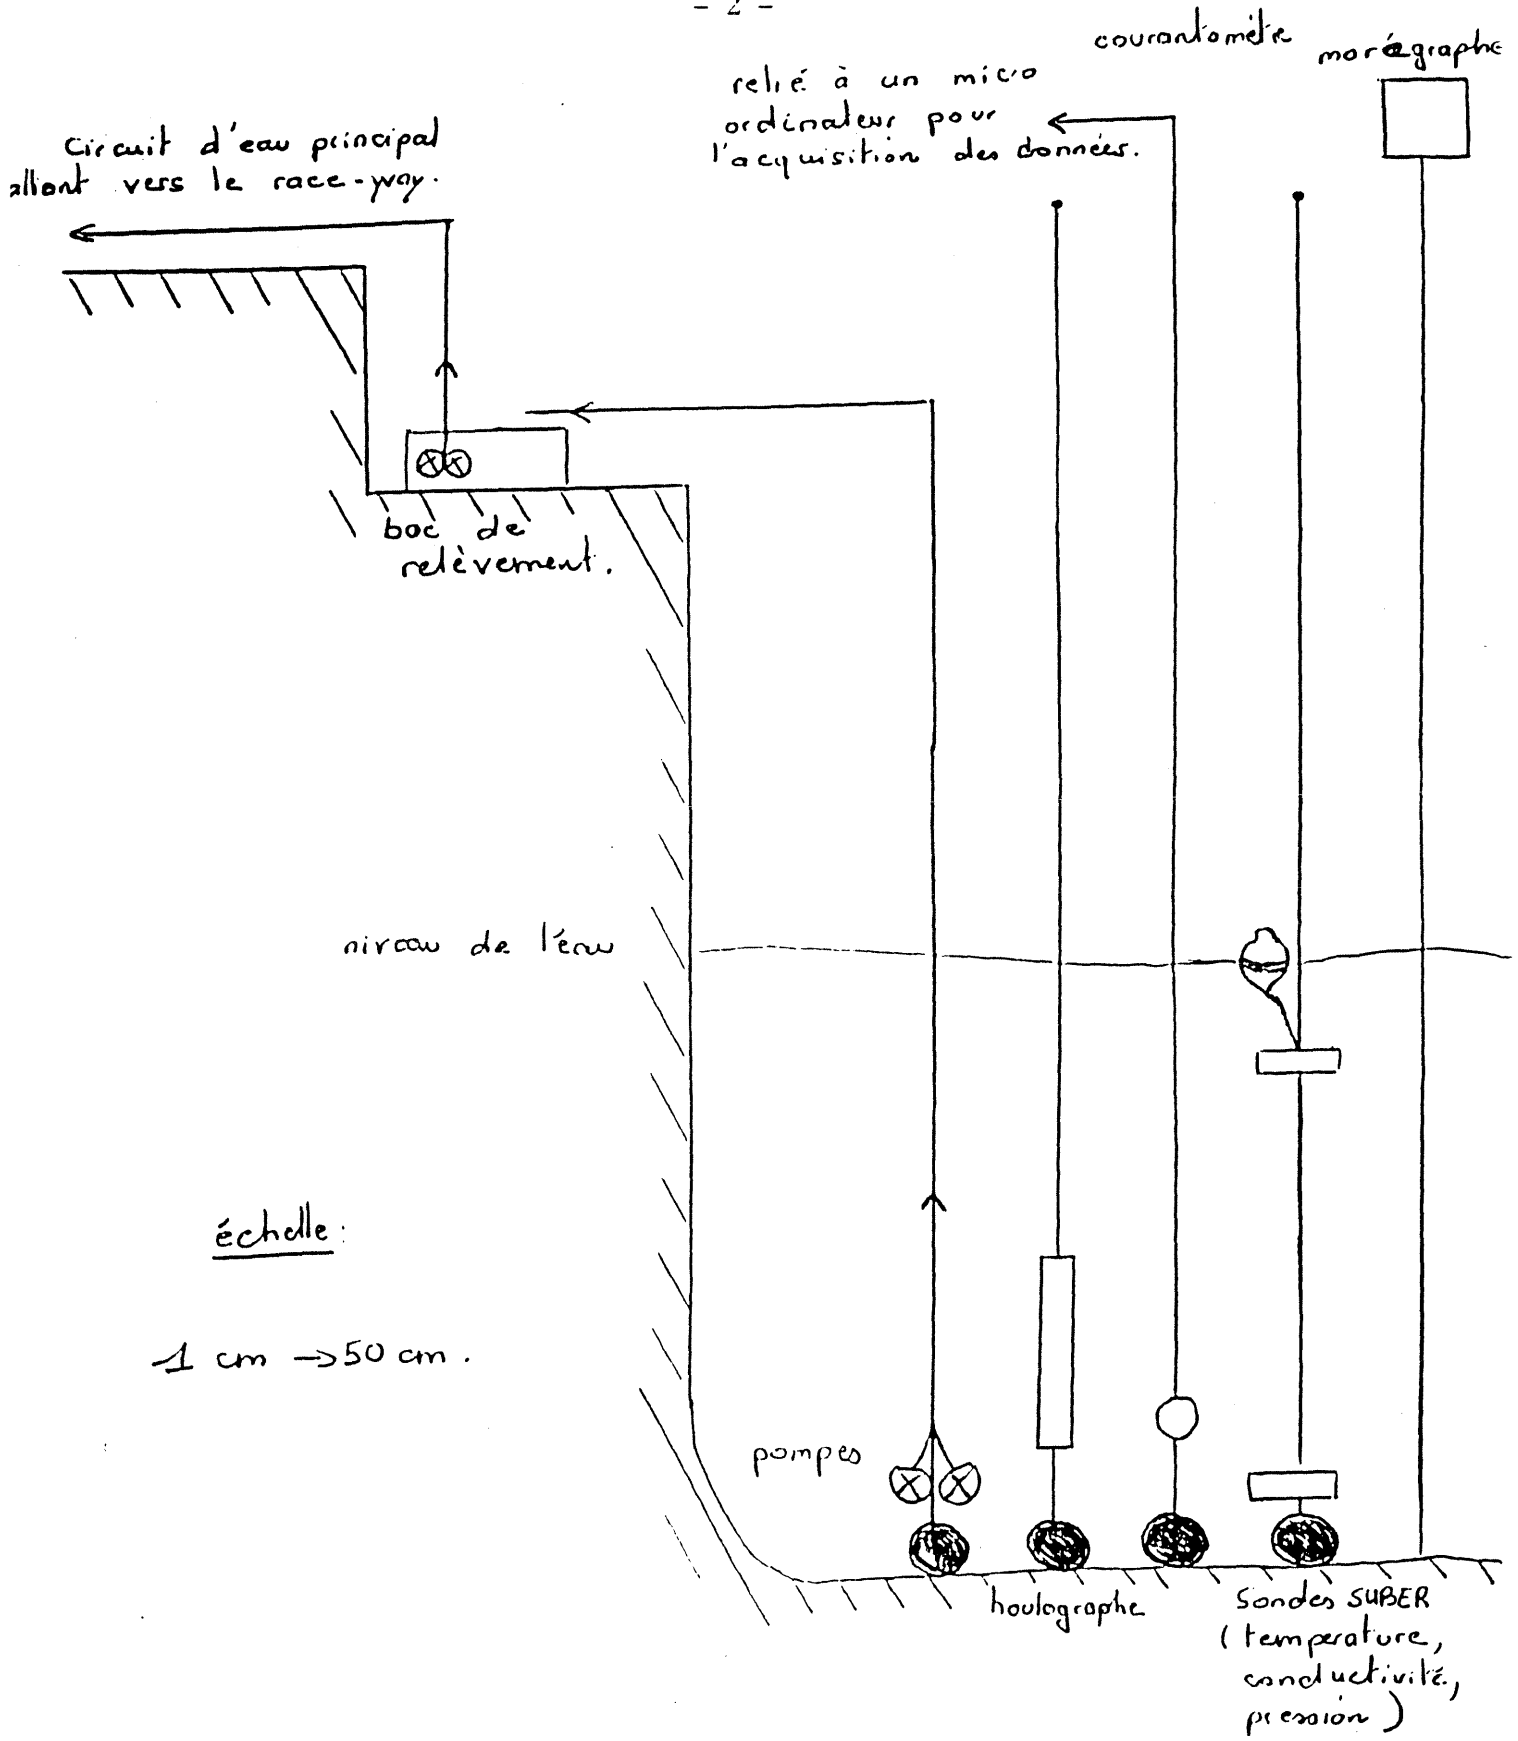 - 2 -
courantomètre
marégraphe
relié à un micro
ordinateur pour
l'acquisition des données.
Circuit d'eau principal
allant vers le race-way.
bac de
relèvement.
niveau de l'eau
échelle:
1 cm → 50 cm.
pompes
houlographe
Sondes SUBER
(temperature,
conductivité,
pression)